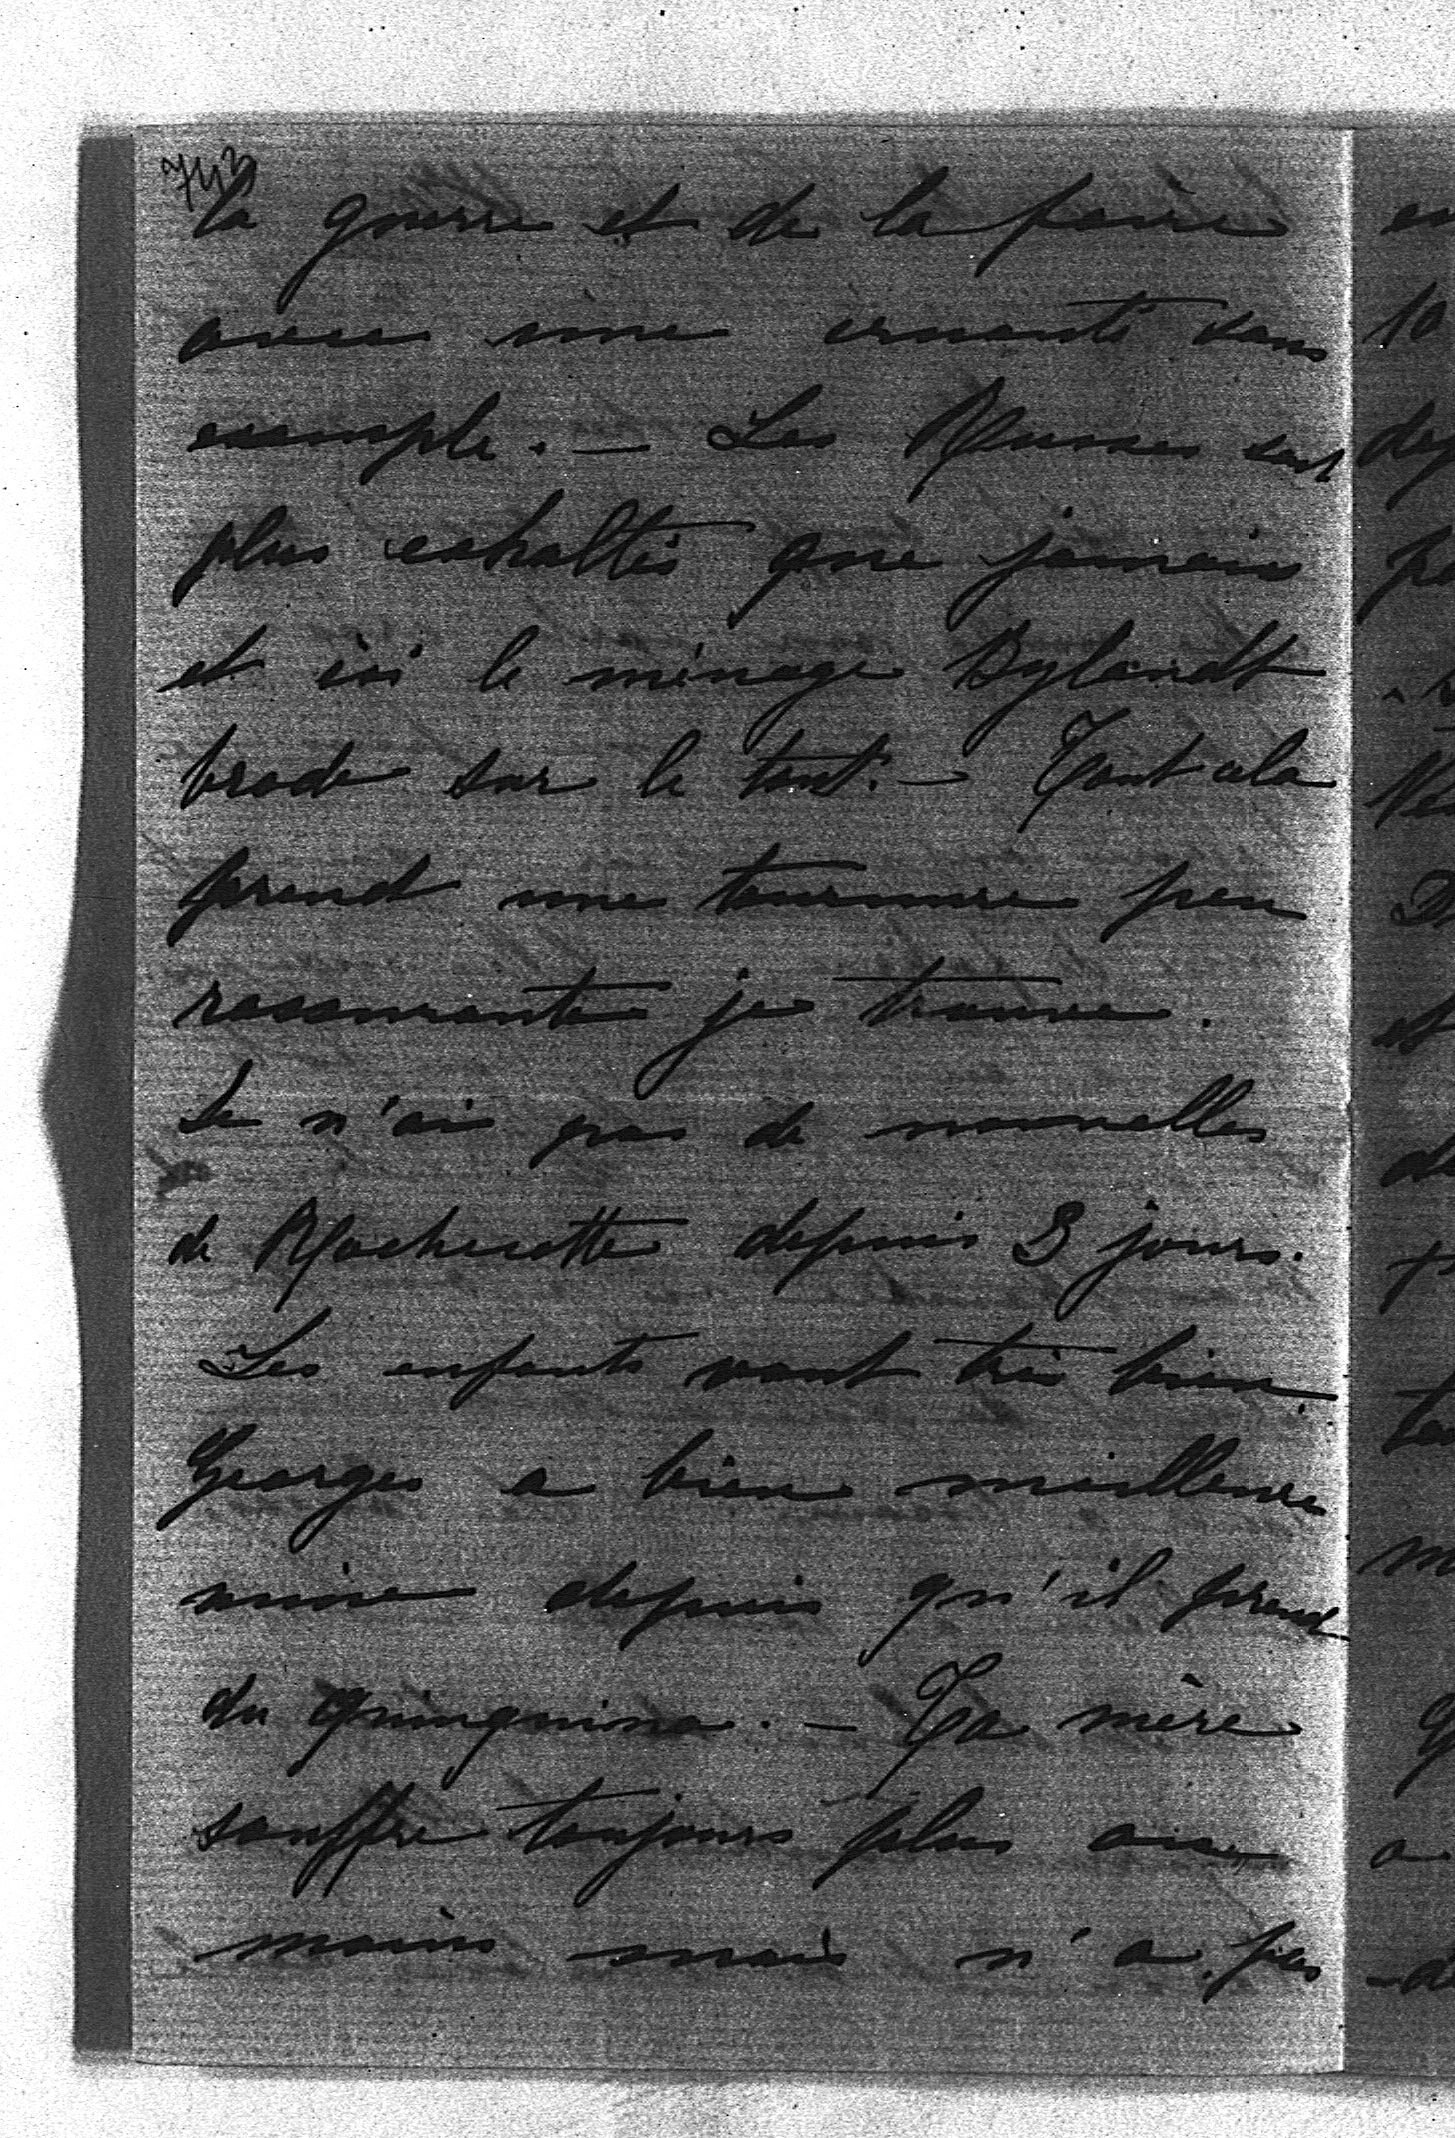 743
la guerre et de la paix
avec une cruauté sans
exemple. — Les Russes sont
plus exhaltés que jamais
et ici le ménage Bylandt
brode sur le tout. — Tout cela
prend une tournure peu
rassurante je trouve.
Je n'ai pas de nouvelles
de depuis 3 jours.
Les enfants vont très bien
Georges a bien meilleure
mine depuis qu'il prend
du quinquina. — Ta mère
souffre toujours plus ou
moins mais n'a pas